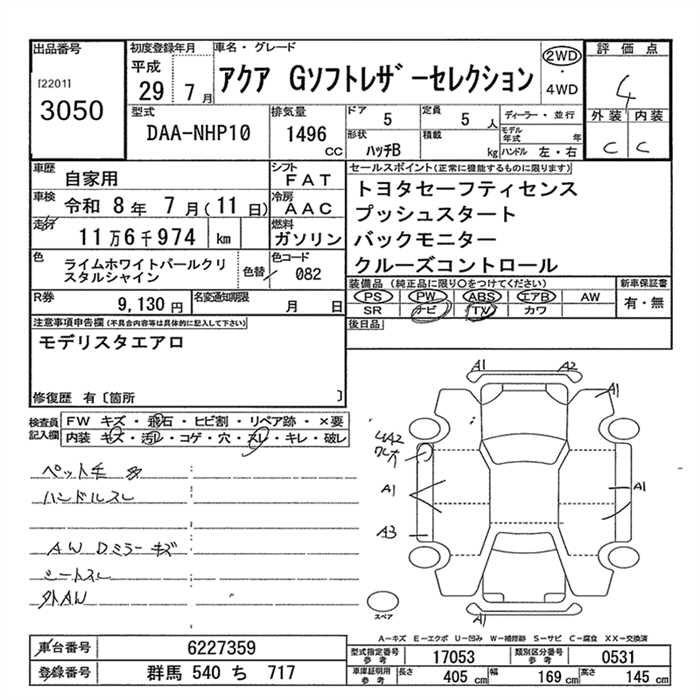 出品番号
[2201]
3050
初度登録年月
平成
29 7月
車名・グレード
アクア Gソフトレザーセレクション
2WD
・
4WD
評価点
4
外装 内装
C C
型式
DAA-NHP10
排気量
1496
CC
ドア
5
定員
5 人
形状
ハッチB
積載
kg
ディーラー・並行
モデル年式 年
ハンドル 左・右
車歴
自家用
シフト
FAT
車検
令和 8年 7月(11日)
冷房
AAC
走行
11万6千974 km
燃料
ガソリン
色
ライムホワイトパールクリ
スタルシャイン
色替
色コード
082
R券
9,130円
名変通知期限
月 日
セールスポイント(正常に機能するものに限ります)
トヨタセーフティセンス
プッシュスタート
バックモニター
クルーズコントロール
装備品(純正品に限り○をつけてください)
新車保証書
PS PW ABS エアB AW
有・無
SR ナビ TV カワ
後日品
注意事項申告欄(不具合内容等は具体的に記入して下さい)
モデリスタエアロ
修復歴 有〔箇所 〕
検査員
記入欄
FW キズ・飛石・ヒビ割・リペア跡・×要
内装 キズ・汚レ・コゲ・穴・スレ・キレ・破レ
ペット毛 多
ハンドルスレ
AW Dミラーキズ
シートスレ
外AW
A1 A2
A1
UA2
A1
A1
A3
A1
スペア
A-キズ E-エクボ U-凹み W-補修跡 S-サビ C-腐食 XX-交換済
車台番号
6227359
登録番号
群馬 540 ち 717
型式指定番号
参考
17053
類別区分番号
参考
0531
車庫証明用
参考
長さ
405 cm
幅
169 cm
高さ
145 cm